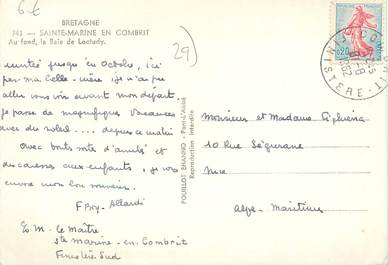 6 €
BRETAGNE
743 — SAINTE-MARINE EN COMBRIT
Au fond, la Baie de Loctudy.
29
invitée jusqu'en Octobre, ici
par ma belle-mère, je n'ai pu
aller vous voir avant mon départ.
Je passe de magnifiques vacances
avec du soleil .... depuis ce matin
avec bonts mots d'amitié et
des caresses aux enfants, je vous
envoie mon bon souvenir.
F Bry-Allardi
E/ M. Le Maître
Ste Marine-en-Combrit
Finistère Sud
POUILLOT ENANNO - Pont-L'Abbé
Reproduction interdite
COMBRIT
FINISTERE
0,20
Monsieur et Madame
10 Rue Ségurane
Nice
Alpes-Maritimes